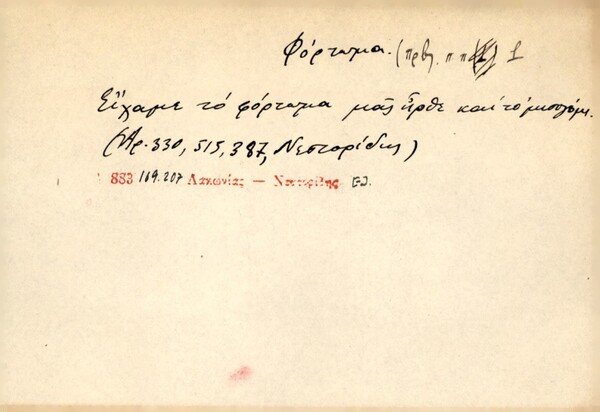 Φόρτωμα. (πρβ. π π 1
Εἴχαμε τό φόρτωμα μᾶς ἦρθε καί τό μισογόμι.
(Ἀρ. 330, 515, 387, Νεστορίδης)
883 169.207 Λακωνίας — Νεστορίδης